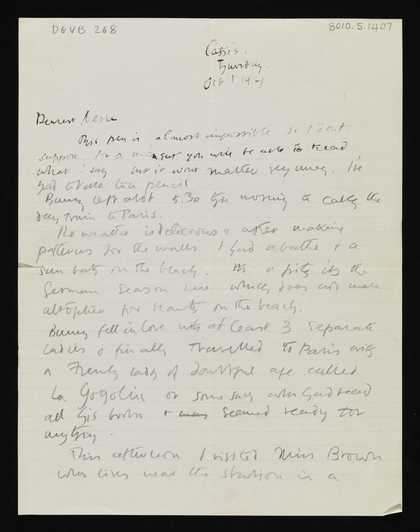 DGVB 268
8010.5.1407
Cassis.
Thursday
Oct 1 1929
Dearest Nessa
This pen is almost impossible so I cant
suppose for a moment you will be able to read
what I say but it wont matter very much. Ive
had to take to a pencil
Bunny left about 5.30 this morning to catch the
day train to Paris.
The weather is delicious & after making
patterns for the walls I had a bathe & a
sun bath on the beach. Its a pity its the
German season here which does not make
altogether for beauty on the beach.
Bunny fell in love with at least 3 separate
ladies & finally travelled to Paris with
a French lady of doubtful age called
La Gogolin or some such who had read
all his books & seemed ready for
anything.
This afternoon I visited Miss Brown
who lives near the station in a